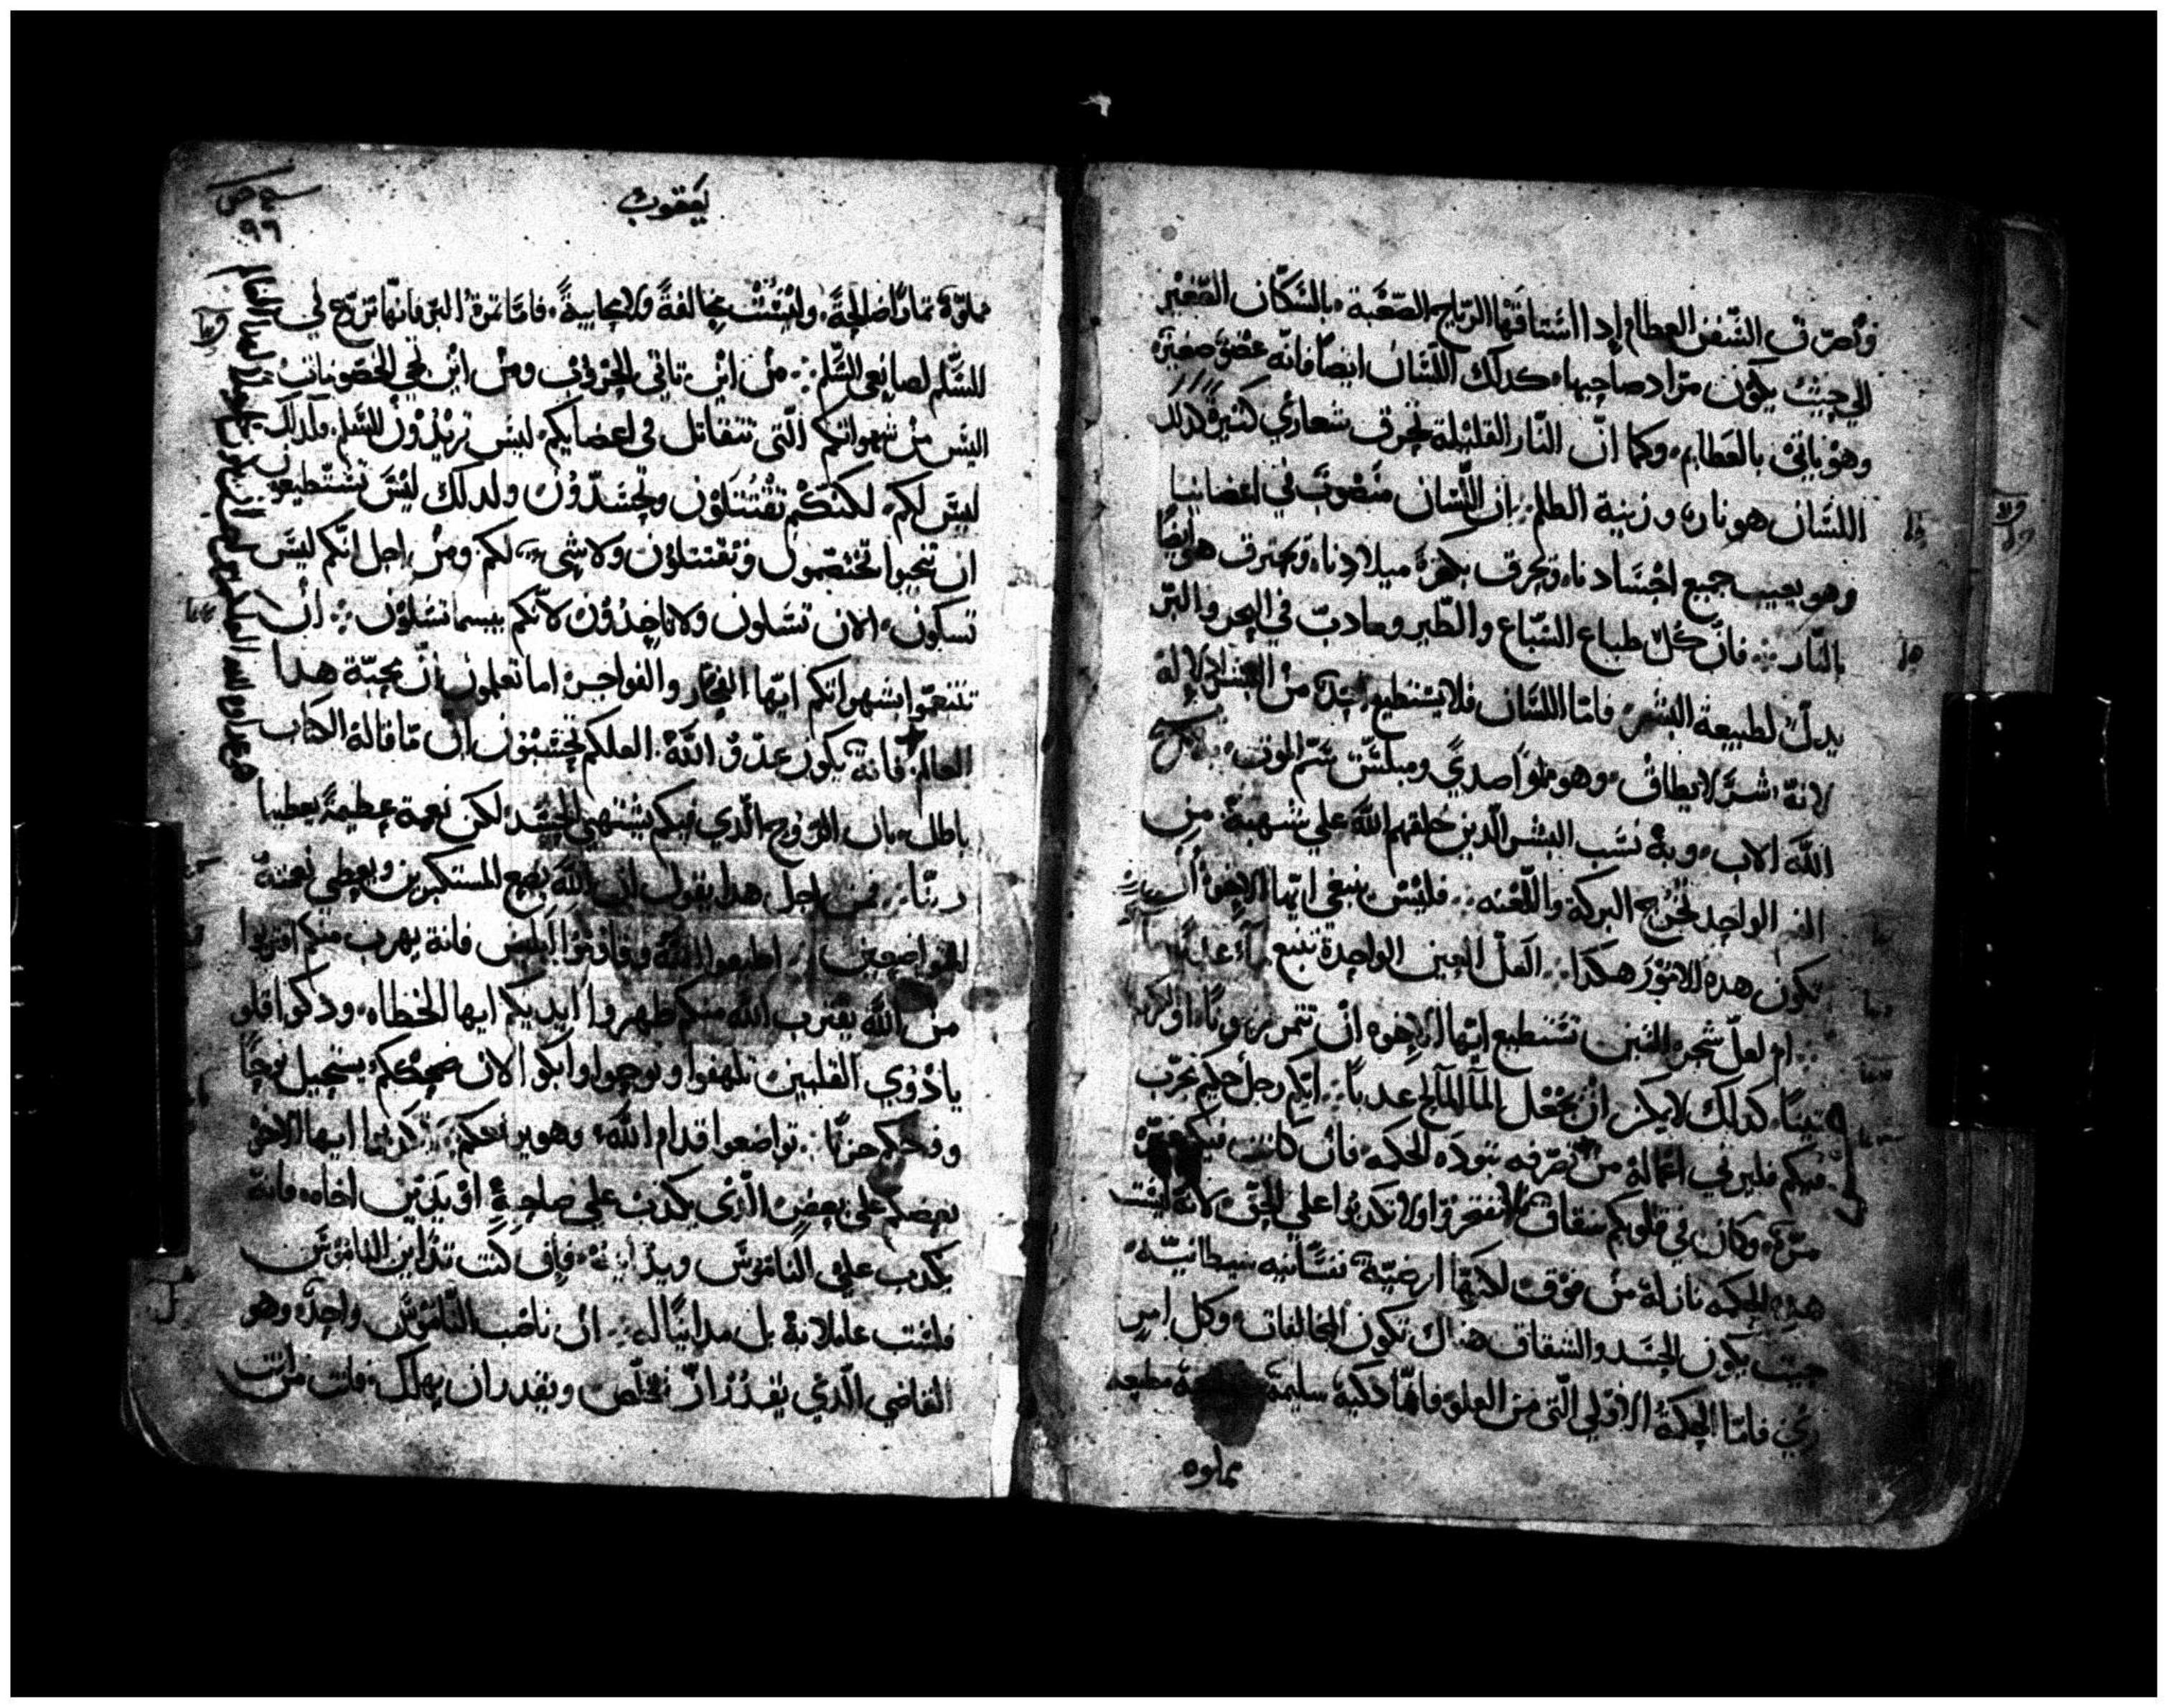 وأصرف السّفن العطام إدا اسْتاقتها الريّاح الصّعبة بالسّكّان الصّغير
الي حيث يكون مراد صاحبها كدلك اللّسَان ايضاً فانّه عضو صغيرة
وهو ياتي بالعَطايم وكما انّ النّار القليلة تحرق شعاري كثيرة كدلك
اللسَان هو نار وزينة الطلم ان اللّسَان منصوب في اعضائنا
وهو يعيب جميع اجْسَادنا ويحرق بكرة ميلادنا ويحترق هو ايضاً
بالنّار فانّ كُلّ طباع السّباع والطّير ومادبّ في البحر والبرّ
يدلّ لطبيعة البشر فامّا اللسَان فلا يستطيع احد من البشر ادلاله
لانّه شرّ لا يطاق وهو مملوا صديً ومبلسّن سَم الموت به نسبح
اللّه الاب وبه نسَب البشر الّدين خلقهم اللّه علي شبهه من
الفم الواحد تخرج البركة واللّعنه فليْسَ ينبغي ايّها الاخوة ان
تكون هده الامور هكدا لَعلّ العين الواحدة تنبع ماء عدباً
ام لعلّ شجرة التين تستطيع ايّها الاخوه انْ تتمر زيتوناً او الكرمة
تيناً كدلك لا يمكن انْ يجْعَل المآ المآلح عدباً ايّكم رجل حكيم مجرّب
فيكم فلير في اعماله من تصرّفه بتودة الحكمه فان كانت فيكم غيرة
مرّة وكان في قلوبكم شقاق فلا تفتخروا ولا تكدبوا علي الحقّ لانّه ليْسَت
هده الحكمه نازلة منْ فوْق لكنّها ارضيّة نفسَانيه شيطانيّة
حيت يكون الحسَد والشقاق هناك تكون المخالفات وكل امر
ري فامّا الحكمة الاولي الّتي من العلوّ فانّها دكية سليمة مطيعه
مملوه
يَعقوب
مملوّة تماراً صَالحةً وليْسَتْ مخالفةً ولا محابيةً فامّا تمرة البرّ فانّها تزرع في
السَّلم لصانعي السَّلم منْ ايْن تاتي الحرُوب ومنْ ايْن تجي الخصُومات
اليسَ من شهواتكم الّتي تتقاتل في اعضايكم ليسَ تريدُوْن السَّلم ولدلك
ليسَ لكم لكنكُم تقْتتلوْن وتحسَدّوُن ولدلك ليْسَ تستطيعون
ان تنجوا تختصمون وتقتتلون ولا شي لكم ومنْ اجل انّكم ليسَ
تسلون الان تسَلون ولا تاخدُوُن لانّكم بيسما تسَلون انْ
تتنعمّوا بشهواتكم ايّها الفجّار والفواجر اما تعلمون انّ محبّة هدا
العالم فانه يكون عدوّ اللّه العلكم تحْسبون ان مّا قاله الكتاب
باطل بان الرّوح الّدي فيكم يشتهي الحسَد لكن نعمة عظيمةً يعطينا
ربّنا فمن اجل هدا يقول ان اللّه يضع المستكبرين ويعطي نعمته
المتواضعين اطيعوا اللّه وقاوموا ابليسَ فانه يهرب منكم اقتربوا
من اللّه يقترب اللّه منكم طهروا ايديكم ايها الخطاه ودكوا قلو
يا دْوي القلبين تلهفوا ونوحوا وابكوا الان ضحككم يستحيل نوحاً
وفرحكم حزناً تواضعوا قدام اللّه وهو يرفعكم ايها الاخوة
بعضكم علي بعض الّدي يكدب علي صاحبهْ اوْ يَديْن اخاه فانه
يكدب علي النامُوسَ ويدْاينه فان كنت تدْاين النامُوسَ
فلسْت عاملا به بل مدايناً له ان ناصب النّامُوسَ واحد وهو
القاضي الّدي يقدْر انْ يخلّص ويقدر ان يهلك فانت من انت